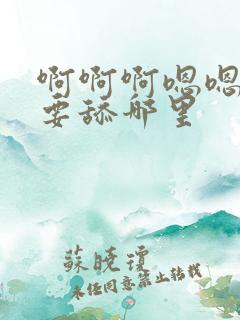 啊啊啊嗯嗯
要舔那里
蘇曉瓊
未经同意禁止转载